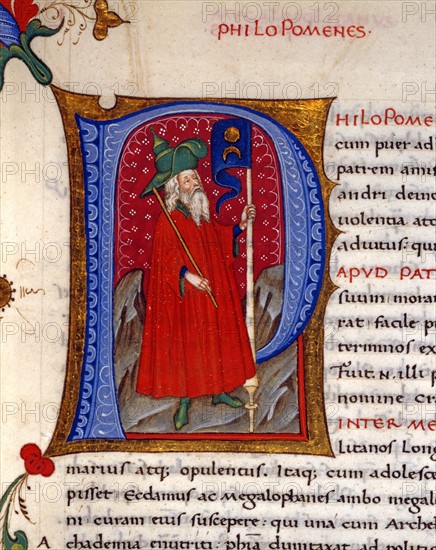 PHILOPOMENES.
HILOPOME
cum puer ad
patrem amis
andri demo
uiolentia atc
aduitus: qu
APVD PAT
suum moran
rat facile p
terminos ex
Fuit. N. illi p
nomine Cra
INTER ME
litanos Long
marius atq; opulentus. Itaq; cum adolesc
pisset Ecdamus ac Megalophanes ambo megali
ni curam eius suscepere: qui una cum Arche
chademia enutriti: phia dumtaxat ad politi